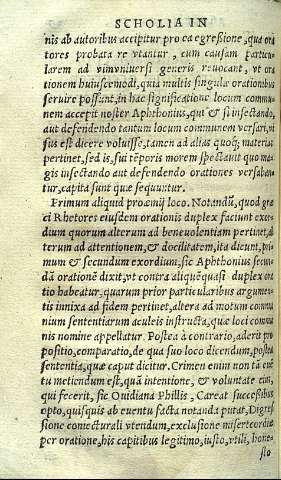 SCHOLIA IN
nis ab autoribus accipitur pro ea egreßione, qua ora
tores probata re vtantur, cum causam particu-
larem ad vim vniuersi generis reuocant, vt ora
tionem huiuscemodi, quà multis singula orationibus
seruire possunt, in hac significatione locum commu
nem accepit noster Aphthonius, qui & si insectando,
aut defendendo tantum locum communem versari, vi
sus est dicere voluisse, tamen ad alias quoq; materias
pertinet, sed is, sui tẽporis morem spectauit quo ma
gis insectando aut defendendo orationes versaban
tur, capita sunt quæ sequuntur.
Primum aliquid proœmij loco. Notandũ, quod græ
ci Rhetores eiusdem orationis duplex faciunt exor
dium quorum alterum ad beneuolentiam pertinet, al
terum ad attentionem, & docilitatem, ita dicunt, pri
mum & secundum exordium, sic Aphthonius secun
dã orationẽ dixit, vt contra aliquẽquasi duplex ora
tio habeatur, quarum prior particularibus argumen
tis innixa ad fidem pertinet, altera ad motum commu
nium sententiarum aculeis instructa, quæ loci commu
nis nomine appellatur. Postea à contrario, aderit pro
positio, comparatio, de qua suo loco dicendum, postea
sententia, quæ caput dicitur. Crimen enim non tã euẽ
tu metiendum est, quã intentione, & voluntate eius,
qui fecerit, sic Ouidiana Phillis, Careat successibus
opto, quisquis ab euentu facta notanda putat, Digres
sione coniecturali vtendum, exclusione misericordiæ
per orationẽ, his capitibus legitimo, iusto, vtili, hone-
sto